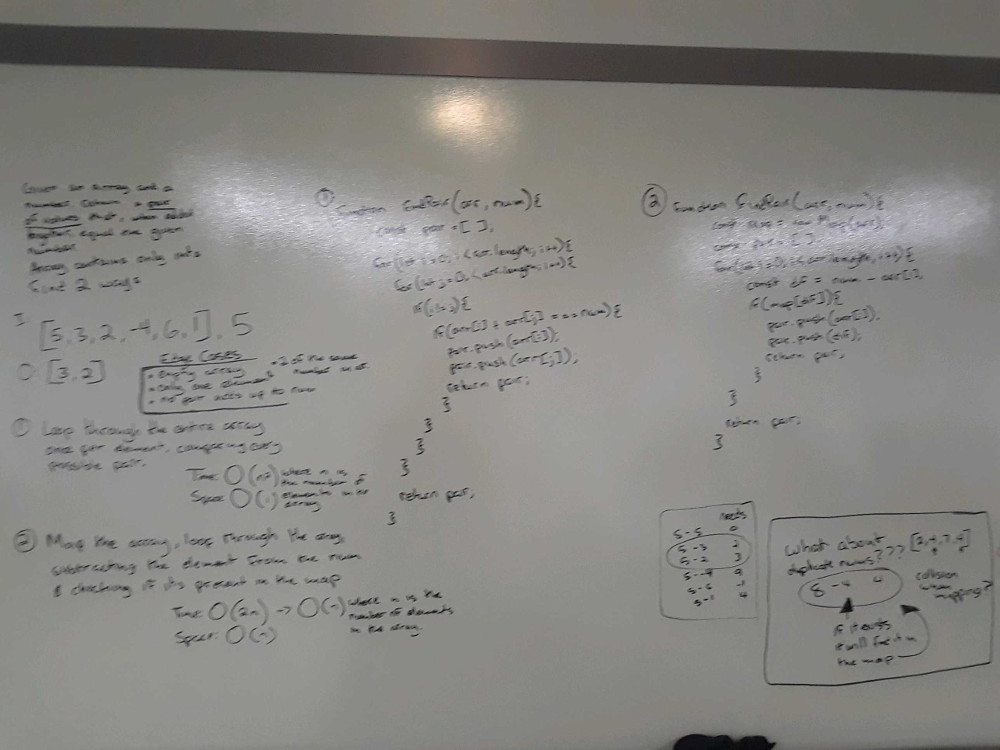 Given an array and a
number return a pair
of values that, when added
together, equal the given
number.
Array contains only ints
Find 2 ways
I: [5,3,2,-4,6,1], 5
O: [3,2]
Edge Cases
• empty array
• only one element
• no pair adds up to num
• 2 of the same
number in arr
① Loop through the entire array
once per element, comparing every
possible pair.
Time: O(n²) where n is
the number of
elements in the
array
Space: O(1)
② Map the array, loop through the array
subtracting the element from the num
& checking if its present in the map
Time: O(2n) -> O(n) where n is the
number of elements
in the array.
Space: O(n)
① function findPair(arr, num){
const pair = [ ];
for(let i=0; i<arr.length; i++){
for(let j=0; <arr.length; i++){
if(i!=j){
if(arr[i] + arr[j] === num){
pair.push(arr[i]);
pair.push(arr[j]);
return pair;
}
}
}
}
return pair;
}
② function findPair(arr, num){
const = new Map(arr);
const pair = [ ];
for(let i=0; i<arr.length, i++){
const dif = num - arr[i];
if(map[dif]){
pair.push(arr[i]);
pair.push(dif);
return pair;
}
}
return pair;
}
needs
5-5 0
5-3 2
5-2 3
5--4 9
5-6 -1
5-1 4
What about [2,4,7,4]
duplicate nums???
8-4 4
collision
when
mapping?
if it exists
it will find it in
the map